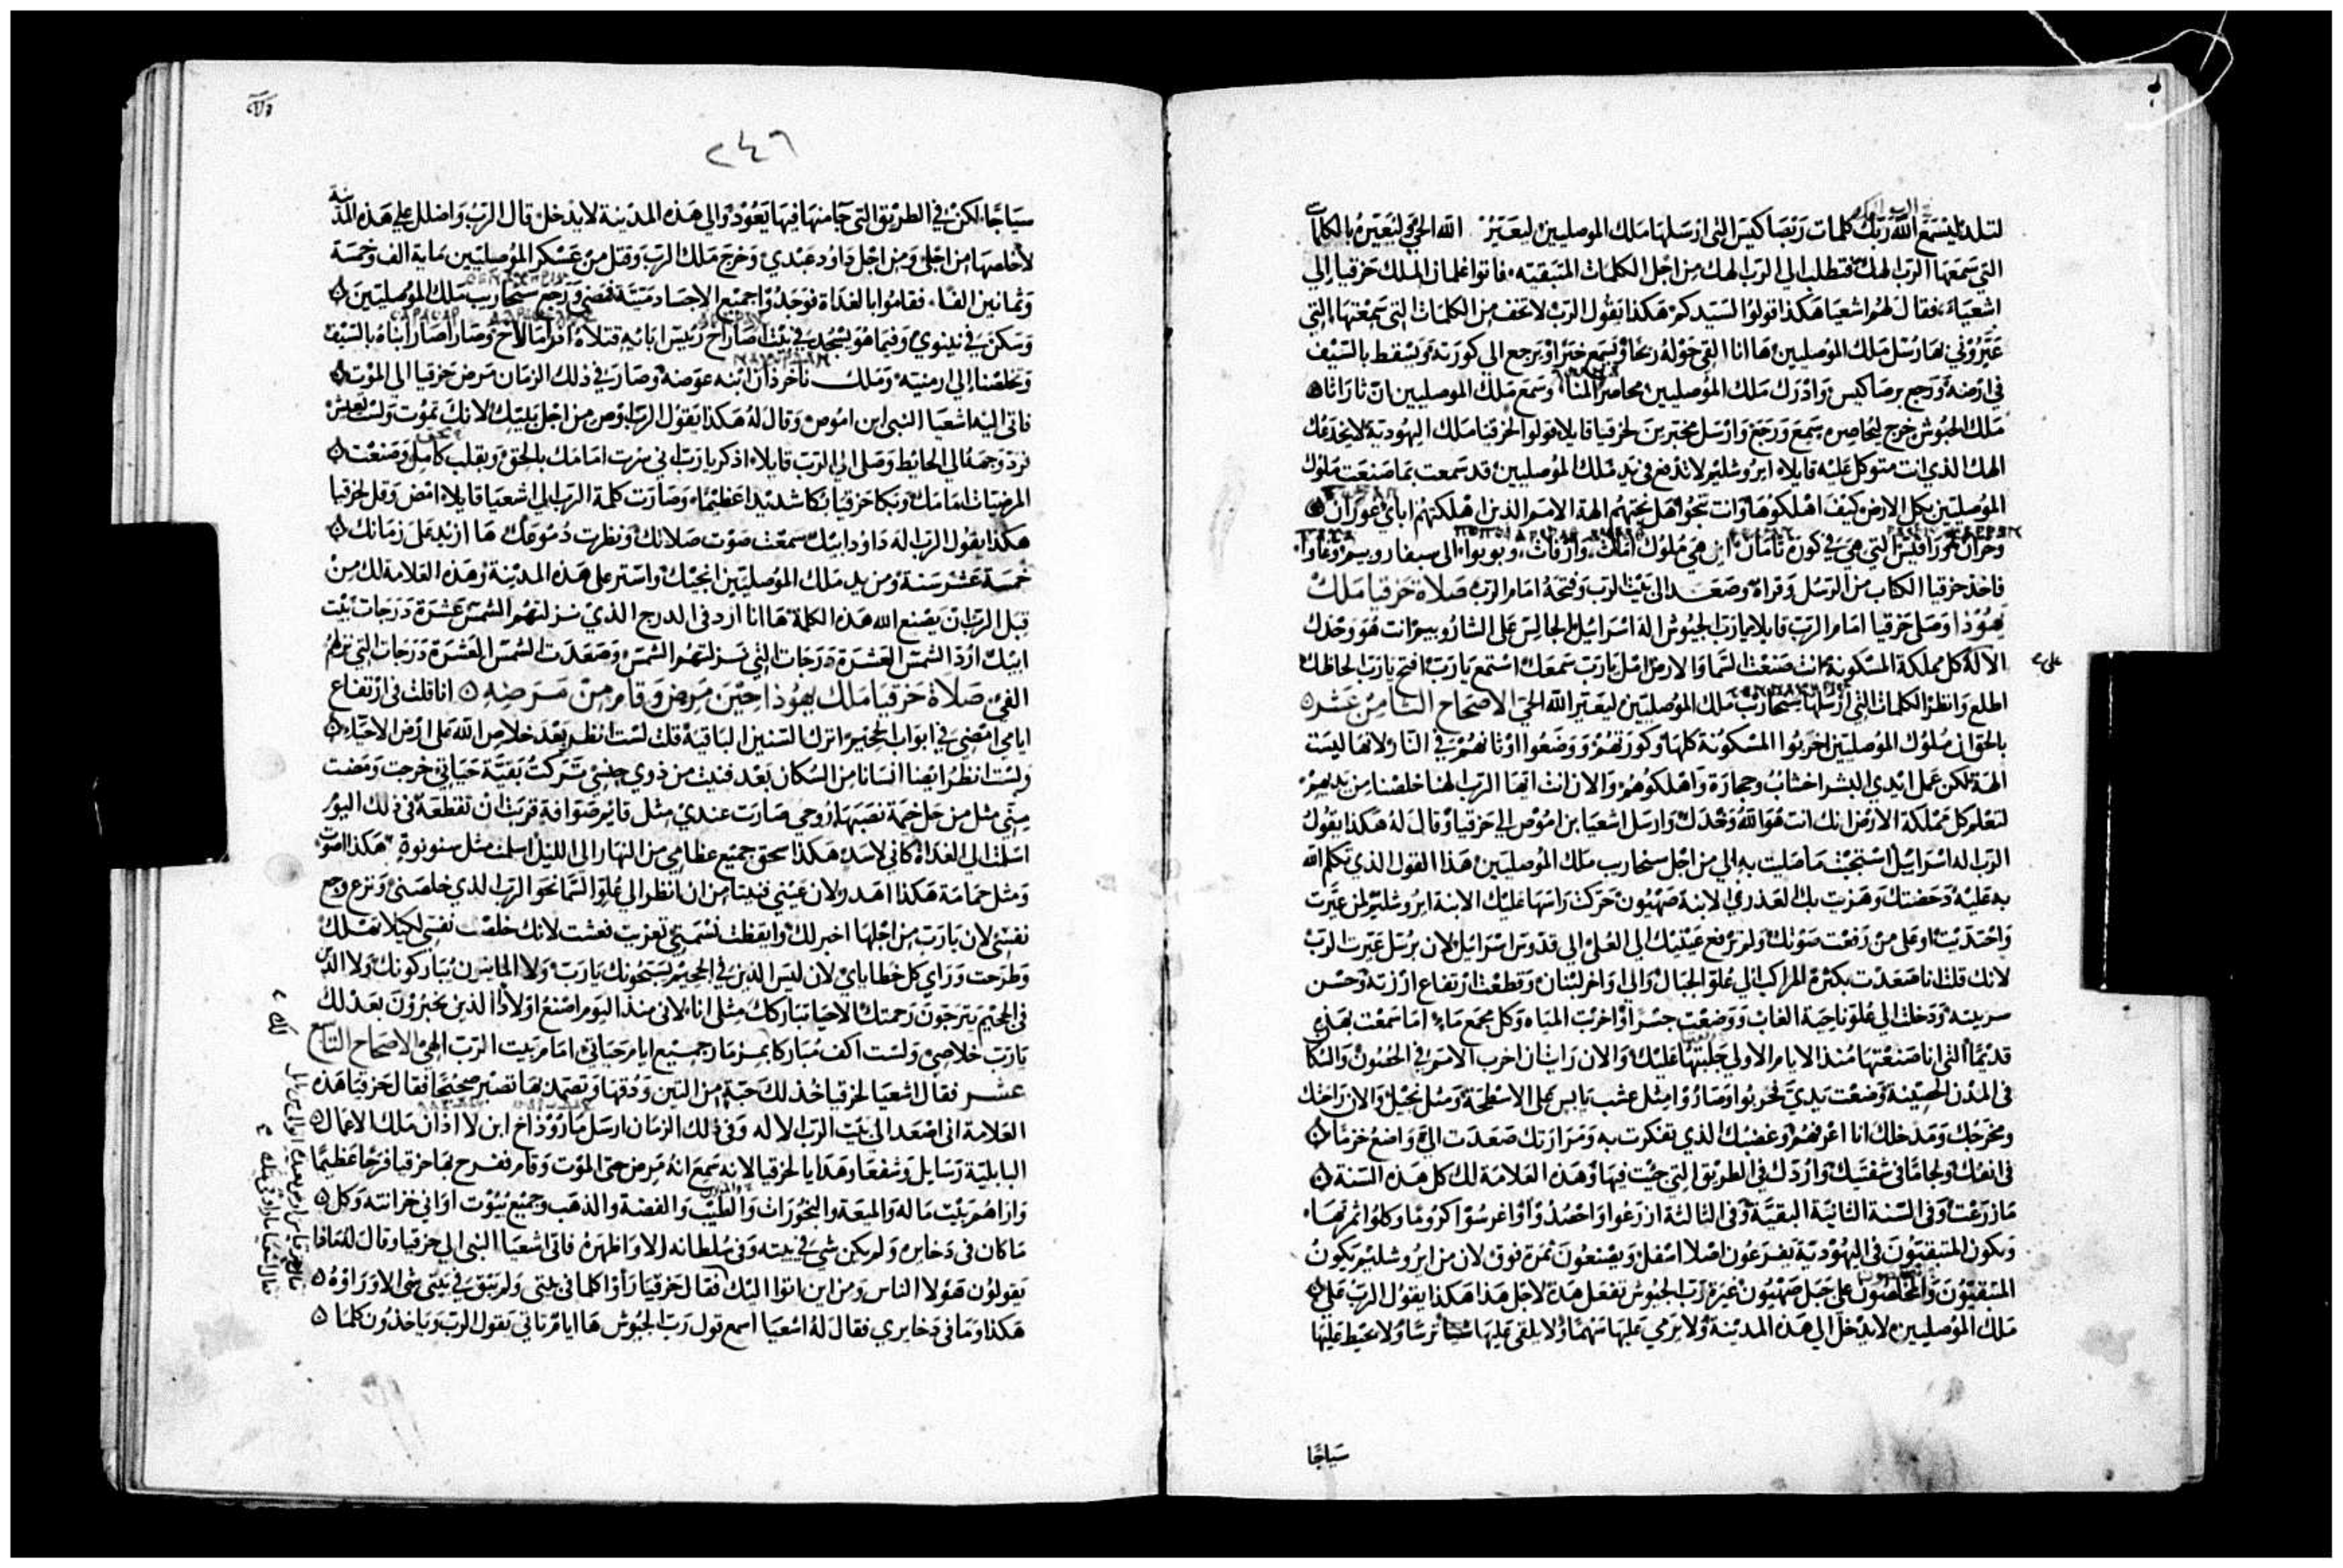 لتلد ليسمع الله ربك كلمات ربصاكيس التي ارسلها ملك الموصليين ليعير الله الحي وليعيره بالكلمات
التي سمعها الرب الهك فتطلب الي الرب الهك من اجل الكلمات المتبقيه فاتوا غلمان الملك حزقيا إلي
اشعياء فقال لهم اشعيا هكذا قولوا لسيدكم هكذا يقول الرب لا تخف من الكلمات التي سمعتها التي
عيروني بها رسل ملك الموصليين ها انا القي حوله ريحا ويسمع خبرا ويرجع الي كورته ويسقط بالسيف
في ارضه ورجع برصاكيس وادرك ملك الموصليين محاصر المنا وسمع ملك الموصليين ان ثاراثا
ملك الحبوش خرج ليحاصره سمع ورجع وارسل مخبرين لحزقيا قايلا قولوا لحزقيا ملك اليهودية لا يخدعك
الهك الذي انت متوكل عليه قايلا ايروشليم لا تدفع في يد ملك الموصليين قد سمعت بما صنعت ملوك
الموصليين بكل الارض كيف اهلكوها وانت تنجوا هل نجتهم الهة الامم الذين اهلكتهم ابأي غوزان
وحران ورافيس التي هي في كورة ثامان اين هي ملوك اماث وارفاث وبوبوا الي سبفارويم وغاوا
فاخذ حزقيا الكتاب من الرسل وقراه وصعد الي بيت الرب وفتحه امام الرب صلاة حزقيا ملك
يهوذا وصلي حزقيا امام الرب قايلا يارب الجبوش اله اسرائيل الجالس علي الشاروبيم انت هو وحدك
الاله كل مملكة المسكونة انت صنعت السما والارض امل يارب سمعك استمع يارب افتح يارب الحاظك
علي
اطلع وانظر الكلمات التي ارسلها سنحاريب ملك الموصليين ليعير الله الحي الاصحاح الثامن عشر
بالحق ان ملوك الموصليين اخربوا المسكونة كلها وكورتهم ووضعوا اوثانهم في النار لانها ليست
الهة لكن عمل ايدي البشر اخشاب وحجارة واهلكوهم والان انت ايها الرب الهنا خلصنا من يديهم
لتعلم كل مملكة الارض انك انت هو الله وحدك وارسل اشعيا بن اموص الي حزقيا وقال له هكذا يقول
الرب اله اسرائيل استجبت ما صليت به الي من اجل سنحاريب ملك الموصليين هذا القول الذي تكلم الله
به عليه دحضتك وهزيت بك العذري الابنة صهيون حركت راسها عليك الابنة ايروشليم لمن عيرت
واحتديت او علي من رفعت صوتك ولم ترفع عينيك الي العلي الي قدوس اسرائيل لان برسل عيرت الرب
لانك قلت انا صعدت بكثرة المراكب الي علو الجبال والي اواخر لبنان وقطعت ارتفاع ارزته وحسن
سربينه ودخلت الي علو ناحية الغاب ووضعت جسرا واخربت المياه وكل مجمع ماء اما سمعت بهذي
قديما التي انا صنعتها منذ الايام الاولي جلبتها عليك والان رايت ان اخرب الامم في الحصون والسكان
في المدن الحصينة وضعت يدي تخربوا وصاروا مثل عشب يابس علي الاسطحة ومثل نجيل والان راحتك
ومخرجك ومدخلك انا اعرفهم وغضبك الذي تفكرت به ومرارتك صعدت الي واضع خزما
في انفك ولجاما في شفتيك واردك في الطريق التي جيت فيها وهذه العلامة لك كل هذه السنة
مازرعت وفي السنة الثانية البقية وفي الثالثة ازرعوا واحصدوا واغرسوا كروما وكلوا ثمرتها
ويكون المتبقيون في اليهودية يفرعون اصلا اسفل ويصنعون ثمرة فوق لان من ايروشليم يكون
المتبقيون والمخلصون علي جبل صهيون غيرة رب الجبوش تفعل هذه لاجل هذا هكذا يقول الرب علي
ملك الموصليين لا يدخل الي هذه المدينة ولا يرمي عليها سهما ولا يلقي عليها شيا ترسا ولا يحيط عليها
سياجا
٢٤٦
سياجا لكن في الطريق التي جا منها فيها يعود والي هذه المدينة لا يدخل قال الرب واضلل علي هذه المدينة
لاخلصها من اجلي ومن اجل داود عبدي وخرج ملك الرب وقتل من عسكر الموصليين ماية الف وخمسة
وثمانين الفا فقاموا بالغداة فوجدوا جميع الاجساد ميتة فمضي ورجع سنحاريب ملك الموصليين
وسكن في نينوي وفيما هو يسجد في بيت اصاراخ رئيس ابائه قتلاه افراما لاخ وصاراصار ابناه بالسيف
وتخلصنا إلي ارمنيته وملك ناخردان ابنه عوضه وصار في ذلك الزمان مرض حزقيا الي الموت
فاتي اليه اشعيا النبي ابن اموص وقال له هكذا يقول الرب اوص من اجل بيتك لانك تموت ولست تعيش
فرد وجهه الي الحايط وصلي الي الرب قايلا اذكر يارب اني صرت امامك بالحق وبقلب كامل وصنعت
المرضيات امامك وبكا حزقيا بكا شديدا عظيما وصارت كلمة الرب الي اشعيا قايلا امض وقل لحزقيا
هكذا يقول الرب اله داود ابيك سمعت صوت صلاتك ونظرت دموعك ها ازيد علي زمانك
خمسة عشر سنة ومن يد ملك الموصليين انجيك واستر علي هذه المدينة وهذه العلامة لك من
قبل الرب ان يصنع الله هذه الكلمة ها انا ارد في الدرج الذي نزلتهم الشمس عشرة درجات بيت
ابيك ارد الشمس العشرة درجات التي نزلتهم الشمس وصعدت الشمس العشرة درجات التي نزلهم
الفي صلاة حزقيا ملك يهوذا حين مرض وقام من مرضه انا قلت في ارتفاع
ايامي امضي في ابواب الجحيم اترك السنين الباقية قلت لست انظر بعد خلاص الله علي ارض الاحياء
ولست انظر ايضا انسانا من السكان بعد فنيت من ذوي جنسي تركت بقية حياتي خرجت ومضت
مني مثل من حل خيمة نصبها روحي صارت عندي مثل قايم صوافة قربت ان تقطعة في ذلك اليوم
اسلمت الي الغداة كاني لاسد هكذا سحق جميع عظامي من النهار الي الليل اسلمت مثل سنونوة هكذا اصوت
ومثل حمامة هكذا اهدر لان عيني فنيتا من ان انظر الي علو السما نحو الرب الذي خلصني ونزع وجع
نفسي لان يارب من اجلها اخبر لك وايقظت نسمتي تعزيت فعشت لانك خلصت نفسي لكيلا تهلك
وطرحت وراي كل خطاياي لان ليس الذين في الجحيم يسبحونك يارب ولا المايتون يباركونك ولا الذين
في الجحيم يترجون رحمتك الاحيا تباركك مثلي انا لاني منذ اليوم اصنع اولادا الذين يخبرون بعدلك
يارب خلاصي ولست اكف مباركا بمزمار جميع ايام حياتي امام بيت الرب الهي الاصحاح التاسع
عشر فقال اشعيا لحزقيا خذ لك حبة من التين ودقها وتضمد بها تصير صحيحا فقال حزقيا هذه
العلامة اني اصعد الي بيت الرب الاله وفي ذلك الزمان ارسل ماروذاخ ابن لااذان ملك الاعمال
البابلية رسايل وشفعا وهدايا لحزقيا لانه سمع انه مرض حتي الموت وقام ففرح بها حزقيا فرحا عظيما
واراهم بيت ماله والميعة والبخورات والطيب والفضة والذهب وجميع بيوت اواني خزانته وكل
ما كان في دخايره ولم يكن شي في بيته وفي سلطانه الا واظهره فاتي اشعيا النبي الي حزقيا وقال له ماذا
يقولون هولا الناس ومن اين اتوا اليك فقال حزقيا راوا كلما في بيتي ولم يبق في بيتي شي الا وراوه
هكذا وما في دخايري فقال له اشعيا اسمع قول رب الجبوش ها ايام تاتي يقول الرب وياخذون كلما